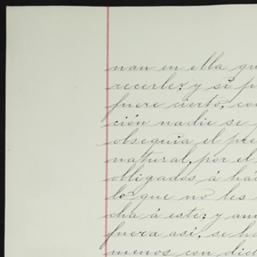 nan en ella qu
recerle; y si p
fuere cierto, co
ción nadie se p
obsequia el pre
natural, por el
obligados á ha
lo que no les
cha á este; y aun
fuera asi, se ha
menos con dic